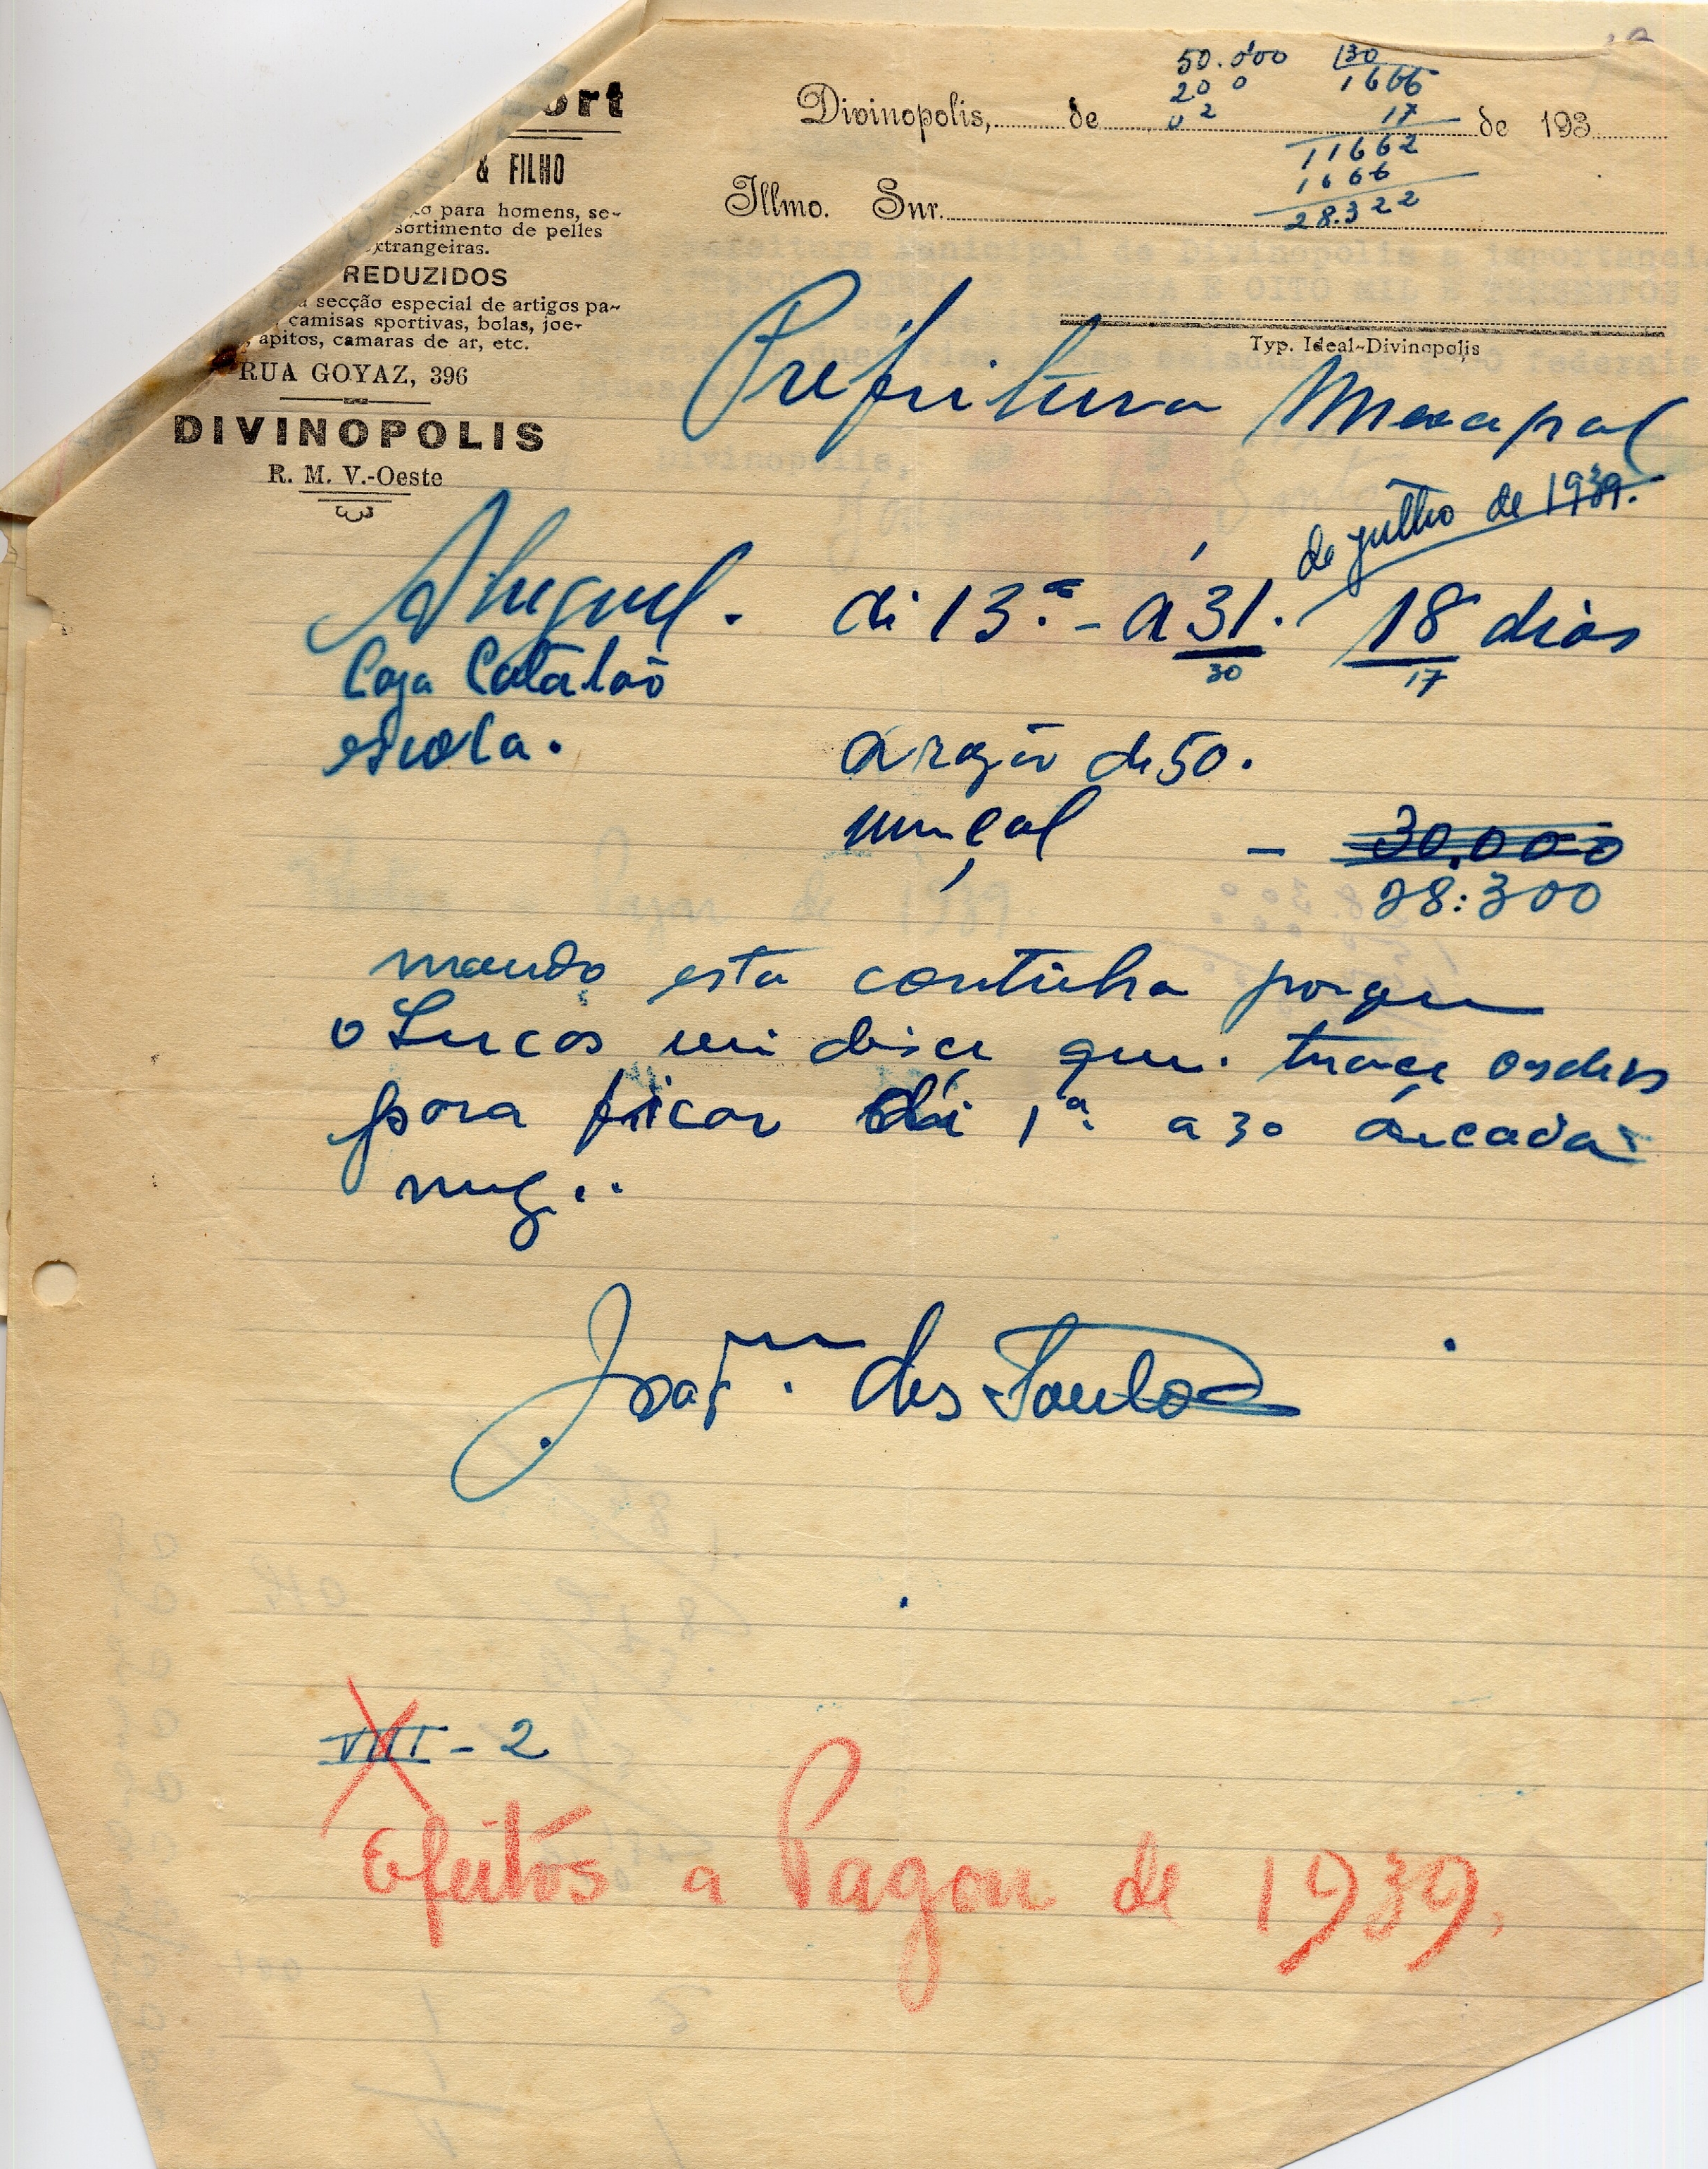 ort
& FILHO
para homens, se-
sortimento de pelles
extrangeiras.
REDUZIDOS
secção especial de artigos pa-
camisas sportivas, bolas, joe-
apitos, camaras de ar, etc.
RUA GOYAZ, 396
DIVINOPOLIS
R. M. V.-Oeste
50.000 30
20 0 1666
02 17
11662
1666
28.322
Divinopolis, de de 193
Illmo. Snr.
Typ. Ideal-Divinopolis
Prefeitura
de julho de 1939.
Aluguel. di 13. - á 31. 18 dias
30 17
Caza Catalão
escola.
a razão de 50.
munçal - 30.000
28:300
mando esta continha porque
o Lucas mi disce que. trace ordens
para ficar di 1ª a 30 de cada
mez..
Joaqm. dos Santos
VIII - 2
Efeitos a Pagar de 1939.